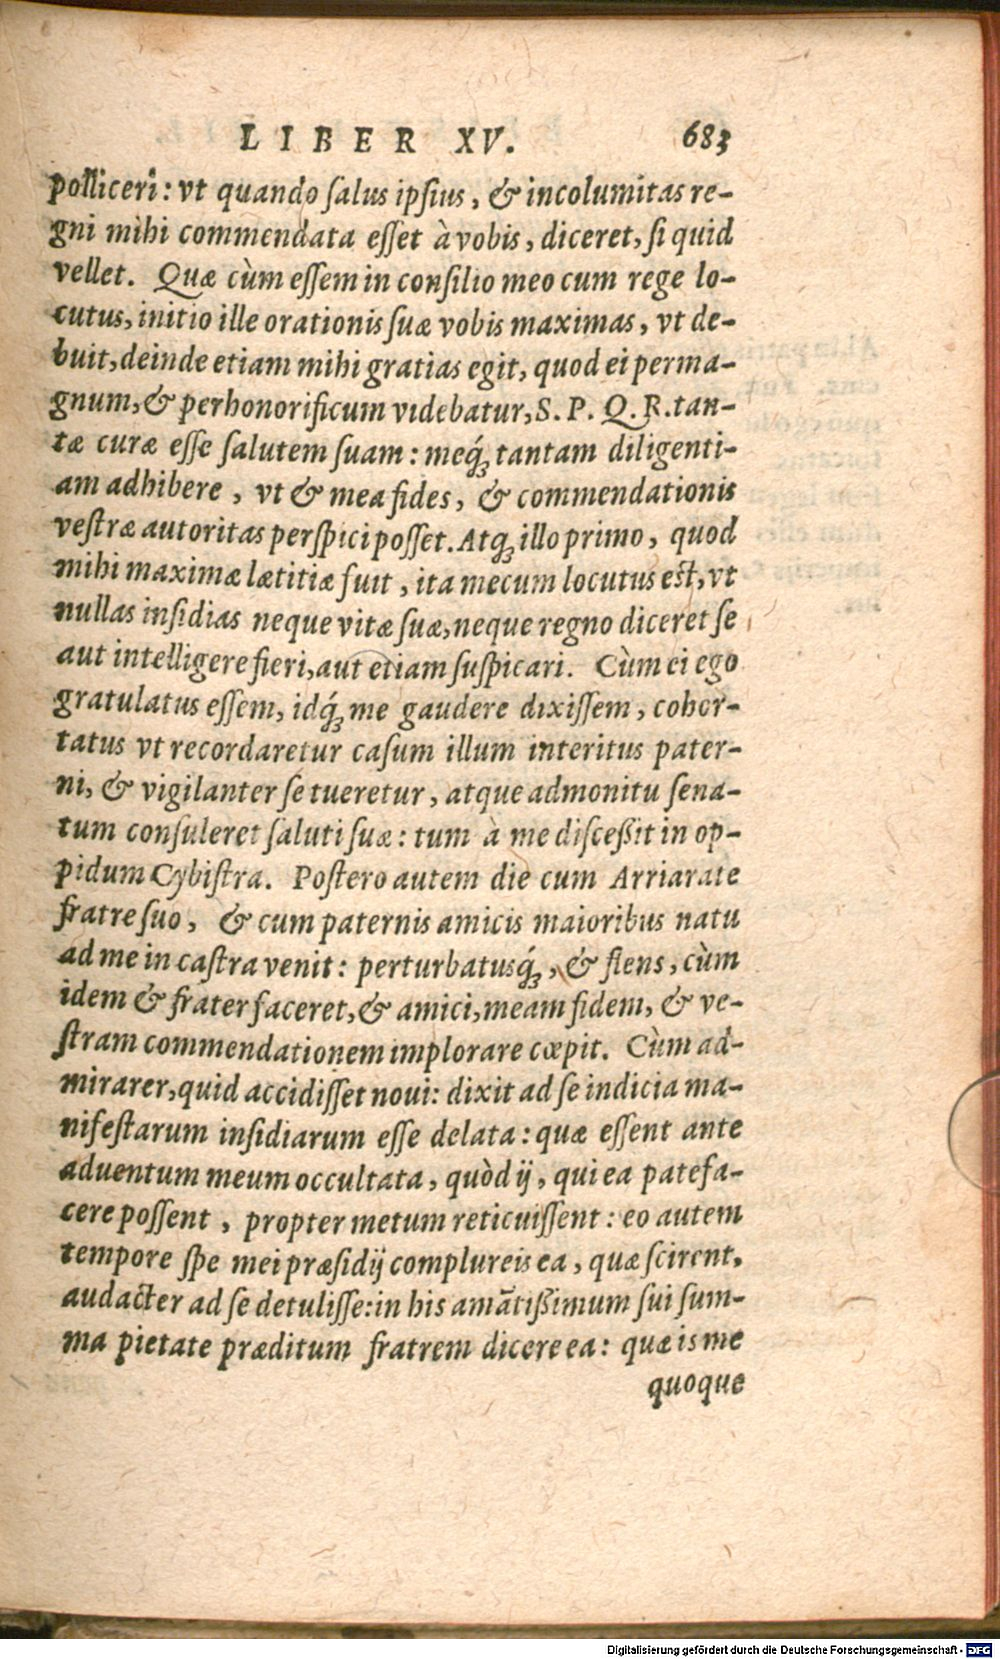 LIBER XV. 683
polliceri: vt quando ſalus ipſius, & incolumitas re-
gni mihi commendata eſſet à vobis, diceret, ſi quid
vellet. Quæ cùm eſſem in conſilio meo cum rege lo-
cutus, initio ille orationis ſuæ vobis maximas, vt de-
buit, deinde etiam mihi gratias egit, quod ei perma-
gnum, & perhonorificum videbatur, S. P. Q. R. tan-
tæ curæ eſſe ſalutem ſuam: meq́; tantam diligenti-
am adhibere, vt & mea fides, & commendationis
veſtræ autoritas perſpici poſſet. Atq; illo primo, quod
mihi maximæ lætitiæ fuit, ita mecum locutus eſt, vt
nullas inſidias neque vitæ ſuæ, neque regno diceret ſe
aut intelligere fieri, aut etiam ſuſpicari. Cùm ei ego
gratulatus eſſem, idq́; me gaudere dixiſſem, cohor-
tatus vt recordaretur caſum illum interitus pater-
ni, & vigilanter ſe tueretur, atque admonitu ſena-
tum conſuleret ſaluti ſuæ: tum à me diſceßit in op-
pidum Cybiſtra. Poſtero autem die cum Arriarate
fratre ſuo, & cum paternis amicis maioribus natu
ad me in caſtra venit: perturbatusq́;, & flens, cùm
idem & frater faceret, & amici, meam fidem, & ve-
ſtram commendationem implorare cœpit. Cùm ad-
mirarer, quid accidiſſet noui: dixit ad ſe indicia ma-
nifeſtarum inſidiarum eſſe delata: quæ eſſent ante
aduentum meum occultata, quòd ij, qui ea patefa-
cere poſſent, propter metum reticuiſſent: eo autem
tempore ſpe mei præſidij complureis ea, quæ ſcirent,
audacter ad ſe detuliſſe: in his amãtißimum ſui ſum-
ma pietate præditum fratrem dicere ea: quæ is me
quoque
Digitalisierung gefördert durch die Deutsche Forschungsgemeinschaft - DFG